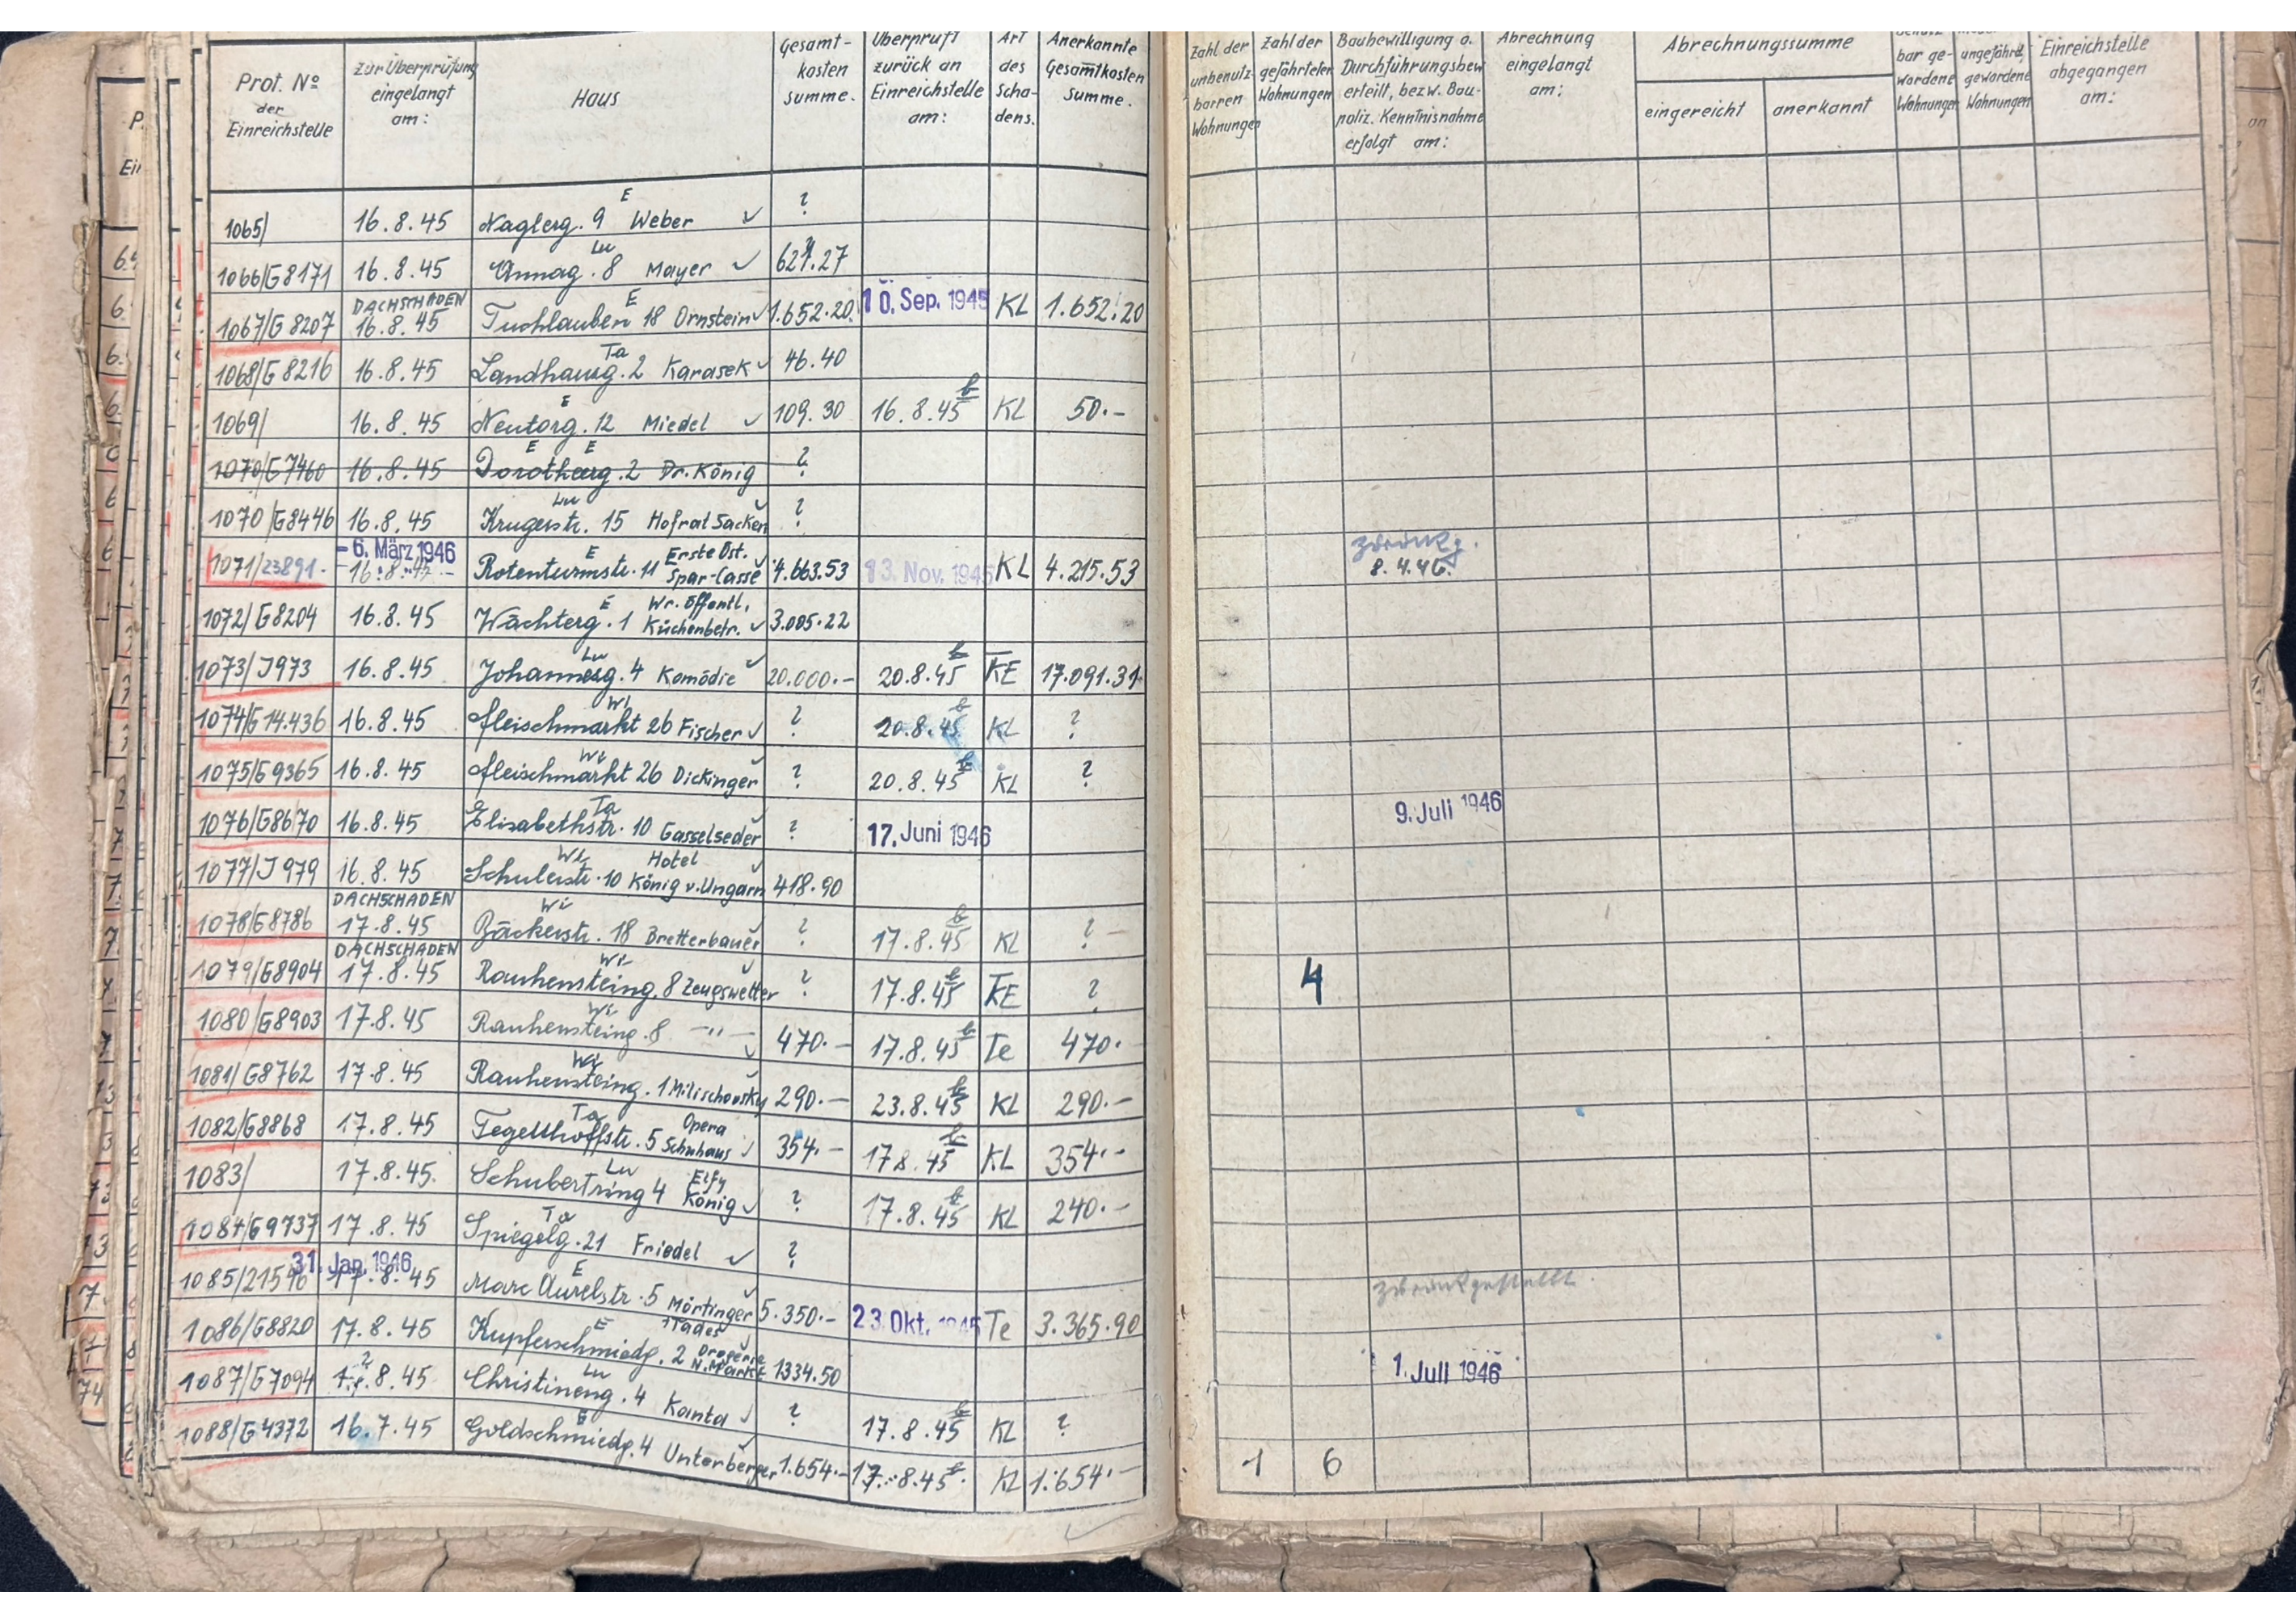 Prot. Nº der Einreichstelle | Zur Überprüfung eingelangt am: | Haus | Gesamt-kosten summe. | Überprüft zurück an Einreichstelle am: | Art des Scha-dens. | Anerkannte Gesamtkosten Summe. | Zahl der unbenutz-barren Wohnungen | Zahl der gefährteten Wohnungen | Baubewilligung o. Durchführungsbew. erteilt, bezw. Bau-poliz. Kenntnisnahme erfolgt am: | Abrechnung eingelangt am: | Abrechnungssumme | eingereicht | anerkannt | bar ge-wordene Wohnungen | ungefährd. gewordene Wohnungen | Einreichstelle abgegangen am:
1065/ 16.8.45 Naglerg. 9 E Weber ✓ ?
1066/G8171 16.8.45 Annag. 8 Lu Mayer ✓ .27
1067/G8207 DACHSCHADEN 16.8.45 Tuchlauben 18 E Ornstein ✓ 1.652.20 10. Sep. 1945 KL 1.652.20
1068/G8216 16.8.45 Landhausg. 2 Ta Karasek ✓ 46.40
1069/ 16.8.45 Neutorg. 12 E Miedel ✓ 109.30 16.8.45 KL 50.-
1070/G7460 16.8.45 Dorotheerg. 2 E E Dr. König ?
1070/G8446 16.8.45 Krugerstr. 15 Lu Hofrat Sacken ✓ ?
1071/23891. - 6. März 1946 16.8.45 Rotenturmstr. 11 E Erste Öst. Spar-Casse ✓ 4.663.53 13. Nov. 1945 KL 4.215.53 8.4.46.
1072/G8204 16.8.45 Wächterg. 1 E Wr. öffentl. Küchenbetr. ✓ 3.005.22
1073/J973 16.8.45 Johannesg. 4 Lu Komödie ✓ 20.000.- 20.8.45 KE 17.091.31
1074/G14.436 16.8.45 Fleischmarkt 26 Wi Fischer ✓ ? 20.8.45 KL ?
1075/G9365 16.8.45 Fleischmarkt 26 Wi Dickinger ✓ ? 20.8.45 KL ?
1076/G8670 16.8.45 Elisabethstr. 10 Ta Gasselseder ✓ ? 17. Juni 1946 9. Juli 1946
1077/J979 16.8.45 Schulerstr. 10 Wi Hotel König v. Ungarn ✓ 418.90
1078/G8786 DACHSCHADEN 17.8.45 Bäckerstr. 18 Wi Bretterbauer ✓ ? 17.8.45 KL ? -
1079/G8904 DACHSCHADEN 17.8.45 Rauhensteing. 8 Wi Zeugswetter ✓ ? 17.8.45 KE ? 4
1080/G8903 17.8.45 Rauhensteing. 8 Wi -"- ✓ 470.- 17.8.45 Te 470.
1081/G8762 17.8.45 Rauhensteing. 1 Wi Milischowsky 290.- 23.8.45 KL 290.-
1082/G8868 17.8.45 Tegetthoffstr. 5 Ta Opera Schuhaus ✓ 354.- 17.8.45 KL 354.-
1083/ 17.8.45. Schubertring 4 Lu Elfy König ✓ ? 17.8.45 KL 240.-
1084/G9737 17.8.45 Spiegelg. 21 Ta Friedel ✓ ?
1085/21596 31. Jan. 1946 17.8.45 Marc Aurelstr. 5 E Mörtinger ✓ 5.350.- 23. Okt. 1945 Te 3.365.90 zurückgestellt
1086/G8820 17.8.45 Kupferschmiedg. 2 E Drogerie N. Markt 1334.50 1. Juli 1946
1087/G7094 8.45 Christineng. 4 Lu Kanta ✓ ? 17.8.45 KL ?
1088/G4372 16.7.45 Goldschmiedg. 4 E Unterberger ✓ 1.654.- 17.8.45 KL 1.654.- 1 6